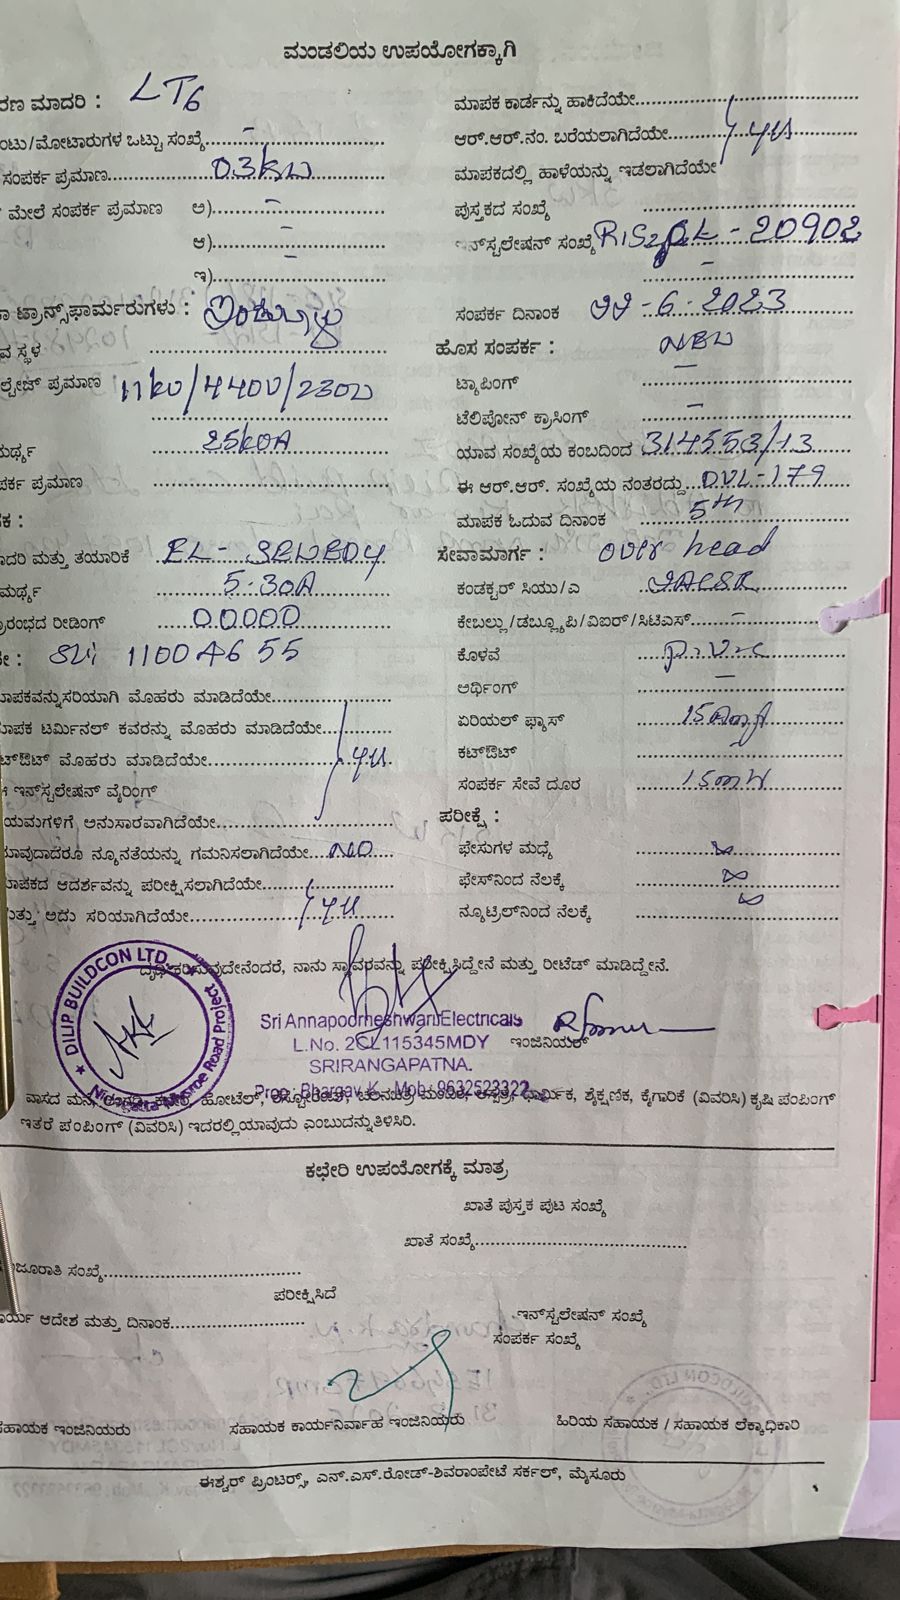 ಮಂಡಲಿಯ ಉಪಯೋಗಕ್ಕಾಗಿ
ರಣ ಮಾದರಿ : LT6
ಂಟು/ಮೋಟಾರುಗಳ ಒಟ್ಟು ಸಂಖ್ಯೆ -
ಸಂಪರ್ಕ ಪ್ರಮಾಣ 0.3kw
ಮೇಲೆ ಸಂಪರ್ಕ ಪ್ರಮಾಣ ಅ) -
ಆ) -
ಇ) -
ಟ್ರಾನ್ಸ್‌ಫಾರ್ಮರುಗಳು :
ವ ಸ್ಥಳ
ಲ್ಟೇಜ್ ಪ್ರಮಾಣ 11kv/440V/230V
ಮರ್ಥ್ಯ 25kVA
ಪರ್ಕ ಪ್ರಮಾಣ
ಪಕ :
ಾದರಿ ಮತ್ತು ತಯಾರಿಕೆ
ಮರ್ಥ್ಯ 5-30A
ರಂಭದ ರೀಡಿಂಗ್ 00000
11004655
ಮಾಪಕವನ್ನು ಸರಿಯಾಗಿ ಮೊಹರು ಮಾಡಿದೆಯೇ
ಮಾಪಕ ಟರ್ಮಿನಲ್ ಕವರನ್ನು ಮೊಹರು ಮಾಡಿದೆಯೇ
ಟ್‌ಔಟ್ ಮೊಹರು ಮಾಡಿದೆಯೇ yes
ಈ ಇನ್‌ಸ್ಟಲೇಷನ್ ವೈರಿಂಗ್
ಯಮಗಳಿಗೆ ಅನುಸಾರವಾಗಿದೆಯೇ
ಯಾವುದಾದರೂ ನ್ಯೂನತೆಯನ್ನು ಗಮನಿಸಲಾಗಿದೆಯೇ NO
ಮಾಪಕದ ಆದರ್ಶವನ್ನು ಪರೀಕ್ಷಿಸಲಾಗಿದೆಯೇ
ಮತ್ತು ಅದು ಸರಿಯಾಗಿದೆಯೇ yes
ಮಾಪಕ ಕಾರ್ಡನ್ನು ಹಾಕಿದೆಯೇ
ಆರ್.ಆರ್.ನಂ. ಬರೆಯಲಾಗಿದೆಯೇ yes
ಮಾಪಕದಲ್ಲಿ ಹಾಳೆಯನ್ನು ಇಡಲಾಗಿದೆಯೇ
ಪುಸ್ತಕದ ಸಂಖ್ಯೆ
ಇನ್‌ಸ್ಟಲೇಷನ್ ಸಂಖ್ಯೆ - 20902
-
ಸಂಪರ್ಕ ದಿನಾಂಕ 22-6-2023
ಹೊಸ ಸಂಪರ್ಕ : NEW
ಟ್ಯಾಪಿಂಗ್ -
ಟೆಲಿಪೋನ್ ಕ್ರಾಸಿಂಗ್ -
ಯಾವ ಸಂಖ್ಯೆಯ ಕಂಬದಿಂದ 314553/13
ಈ ಆರ್.ಆರ್. ಸಂಖ್ಯೆಯ ನಂತರದ್ದು DVL-179
ಮಾಪಕ ಓದುವ ದಿನಾಂಕ 5th
ಸೇವಾಮಾರ್ಗ : over head
ಕಂಡಕ್ಟರ್ ಸಿಯು/ಎ
ಕೇಬಲ್ಲು/ಡಬ್ಲ್ಯೂಪಿ/ವಿಐರ್/ಸಿಟಿಎಸ್ -
ಕೊಳವೆ P.V.C
ಅರ್ಥಿಂಗ್ -
ಏರಿಯಲ್ ಫ್ಯೂಸ್ 15Amp
ಕಟ್‌ಔಟ್ -
ಸಂಪರ್ಕ ಸೇವೆ ದೂರ
ಪರೀಕ್ಷೆ :
ಫೇಸುಗಳ ಮಧ್ಯೆ ∞
ಫೇಸ್‌ನಿಂದ ನೆಲಕ್ಕೆ ∞
ನ್ಯೂಟ್ರಿಲ್‌ನಿಂದ ನೆಲಕ್ಕೆ ∞
ದೃಢೀಕರಿಸುವುದೇನೆಂದರೆ, ನಾನು ಸ್ಥಾವರವನ್ನು ಪರೀಕ್ಷಿಸಿದ್ದೇನೆ ಮತ್ತು ರೀಟೆಡ್ ಮಾಡಿದ್ದೇನೆ.
DILIP BUILDCON LTD.
Road Project
Sri Annapoorneshwari Electricals
L.No. 2CL115345MDY
SRIRANGAPATNA.
Prop : Bhargav K. Mob : 9632523322
ಇಂಜಿನಿಯರ್
ವಾಸದ ಮನೆ, ಅಂಗಡಿ, ಕಛೇರಿ, ಹೋಟೆಲ್, ರೆಸ್ಟೋರೆಂಟ್, ಚಲನಚಿತ್ರ ಮಂದಿರ, ಆಸ್ಪತ್ರೆ, ಧಾರ್ಮಿಕ, ಶೈಕ್ಷಣಿಕ, ಕೈಗಾರಿಕೆ (ವಿವರಿಸಿ) ಕೃಷಿ ಪಂಪಿಂಗ್
ಇತರೆ ಪಂಪಿಂಗ್ (ವಿವರಿಸಿ) ಇದರಲ್ಲಿ ಯಾವುದು ಎಂಬುದನ್ನು ತಿಳಿಸಿರಿ.
ಕಛೇರಿ ಉಪಯೋಗಕ್ಕೆ ಮಾತ್ರ
ಖಾತೆ ಪುಸ್ತಕ ಪುಟ ಸಂಖ್ಯೆ
ಖಾತೆ ಸಂಖ್ಯೆ
ಜೂರಾತಿ ಸಂಖ್ಯೆ
ಪರೀಕ್ಷಿಸಿದೆ
ರ್ಯ ಆದೇಶ ಮತ್ತು ದಿನಾಂಕ
ಇನ್‌ಸ್ಟಲೇಷನ್ ಸಂಖ್ಯೆ
ಸಂಪರ್ಕ ಸಂಖ್ಯೆ
ಸಹಾಯಕ ಇಂಜಿನಿಯರು ಸಹಾಯಕ ಕಾರ್ಯನಿರ್ವಾಹ ಇಂಜಿನಿಯರು ಹಿರಿಯ ಸಹಾಯಕ / ಸಹಾಯಕ ಲೆಕ್ಕಾಧಿಕಾರಿ
ಈಶ್ವರ್ ಪ್ರಿಂಟರ್ಸ್, ಎನ್.ಎಸ್.ರೋಡ್-ಶಿವರಾಂಪೇಟೆ ಸರ್ಕಲ್, ಮೈಸೂರು